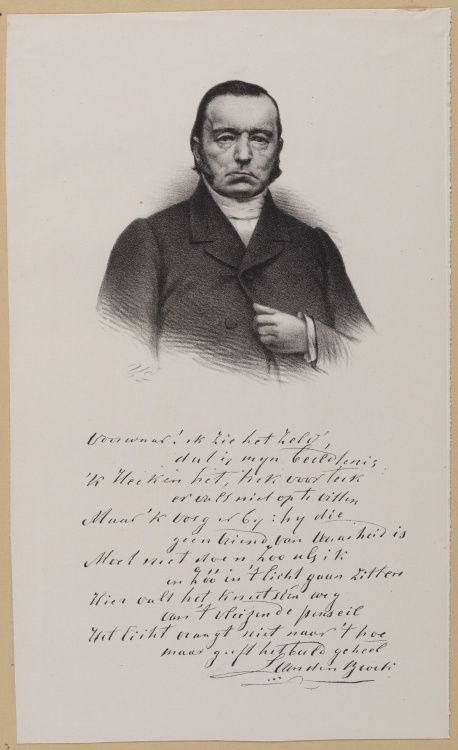 Voorwaar! ik zie het zelf,
dat is mijn beeldtenis:
'k Heek in het, trek voor trek
er valt niet op te vitten
Maar 'k voeg er by: hy die
geen vriend van Waarheid is
Moet niet doen zoo als ik
en zóó in 't licht gaan zitten
Hier valt het kunstlen weg
van 't vleizende penseil
Het licht vraagt niet naar 't hoe
maar geeft het beeld geheel